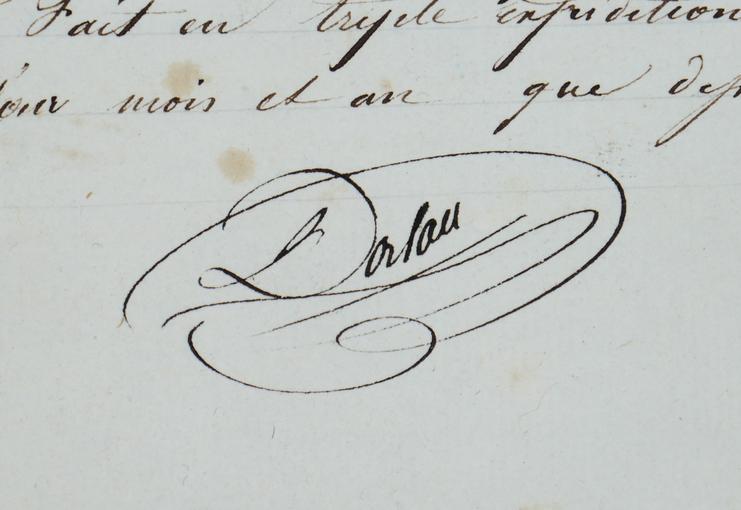 Fait en triple expédition
jour mois et an que des
Dorlan